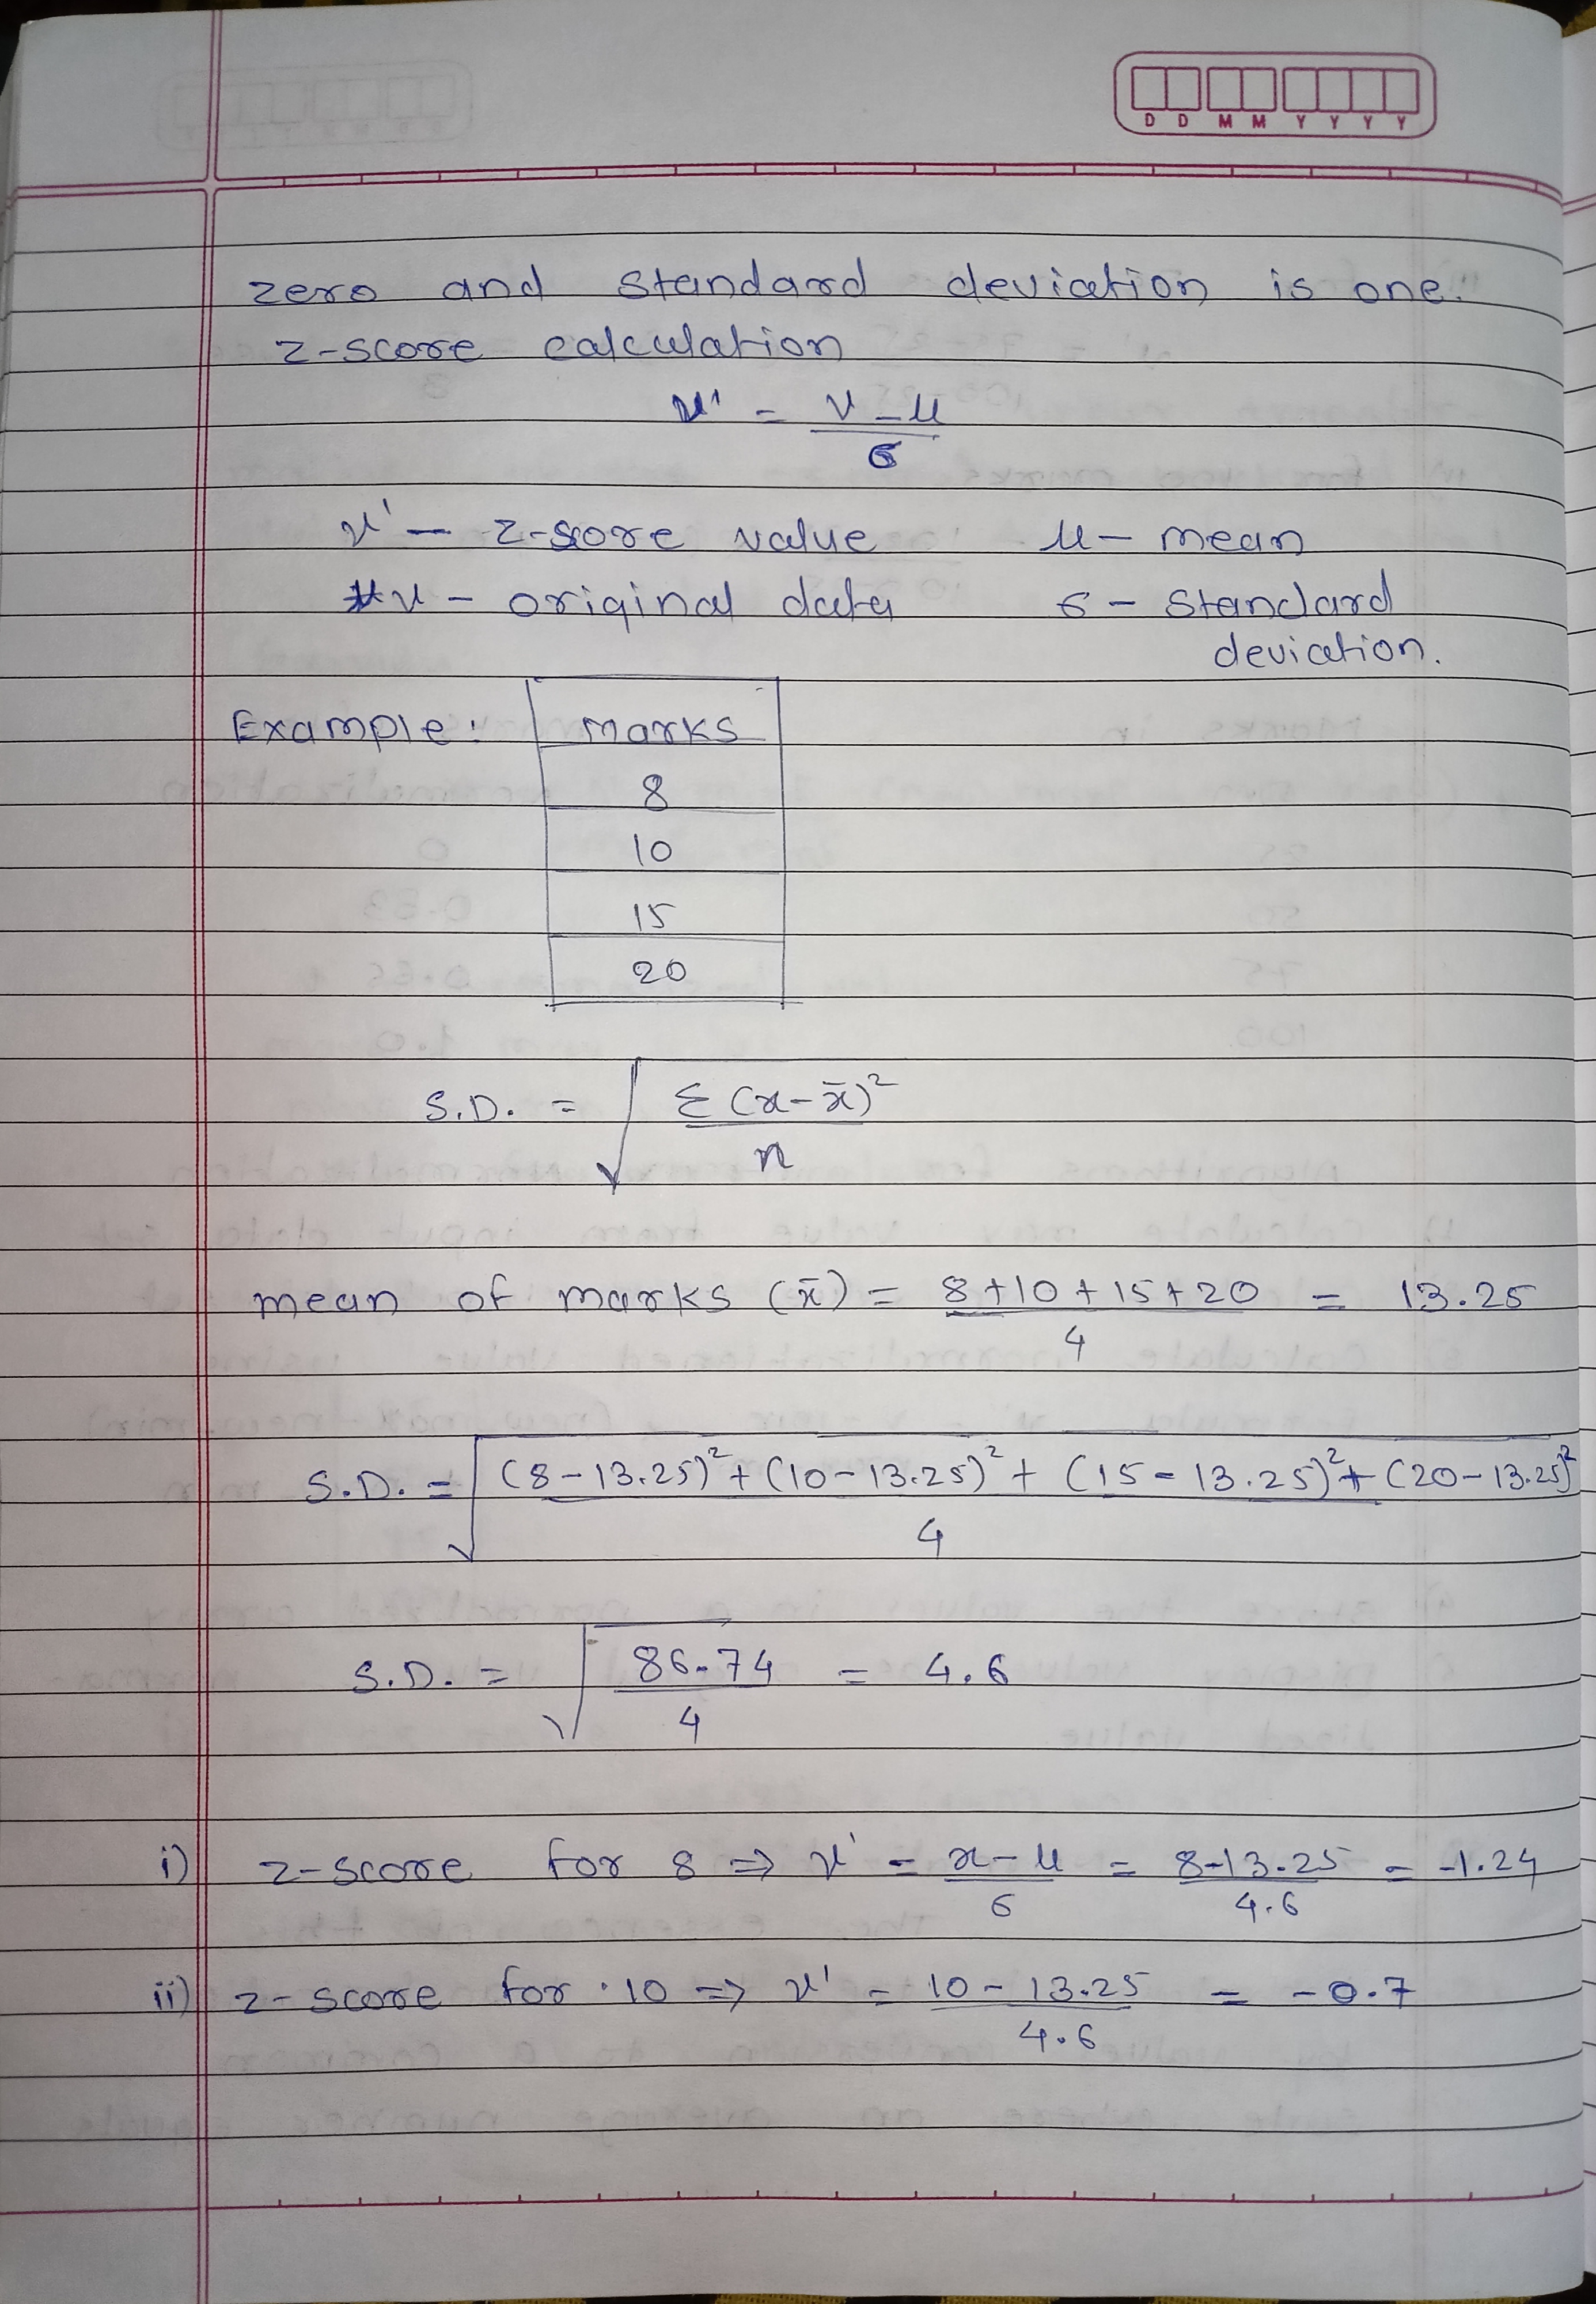 D D M M Y Y Y Y
zero and standard deviation is one.
z-score calculation
v' = v - μ / σ
v' - z-score value μ - mean
v - original data σ - standard
deviation.
Example: marks
8
10
15
20
S.D. = √ Σ (x - x̄)² / n
mean of marks (x̄) = 8 + 10 + 15 + 20 / 4 = 13.25
S.D. = √ (8 - 13.25)² + (10 - 13.25)² + (15 - 13.25)² + (20 - 13.25)² / 4
S.D. = √ 86.74 / 4 = 4.6
i) z-score for 8 ⇒ v' = x - μ / σ = 8 - 13.25 / 4.6 = -1.24
ii) z-score for 10 ⇒ v' = 10 - 13.25 / 4.6 = -0.7